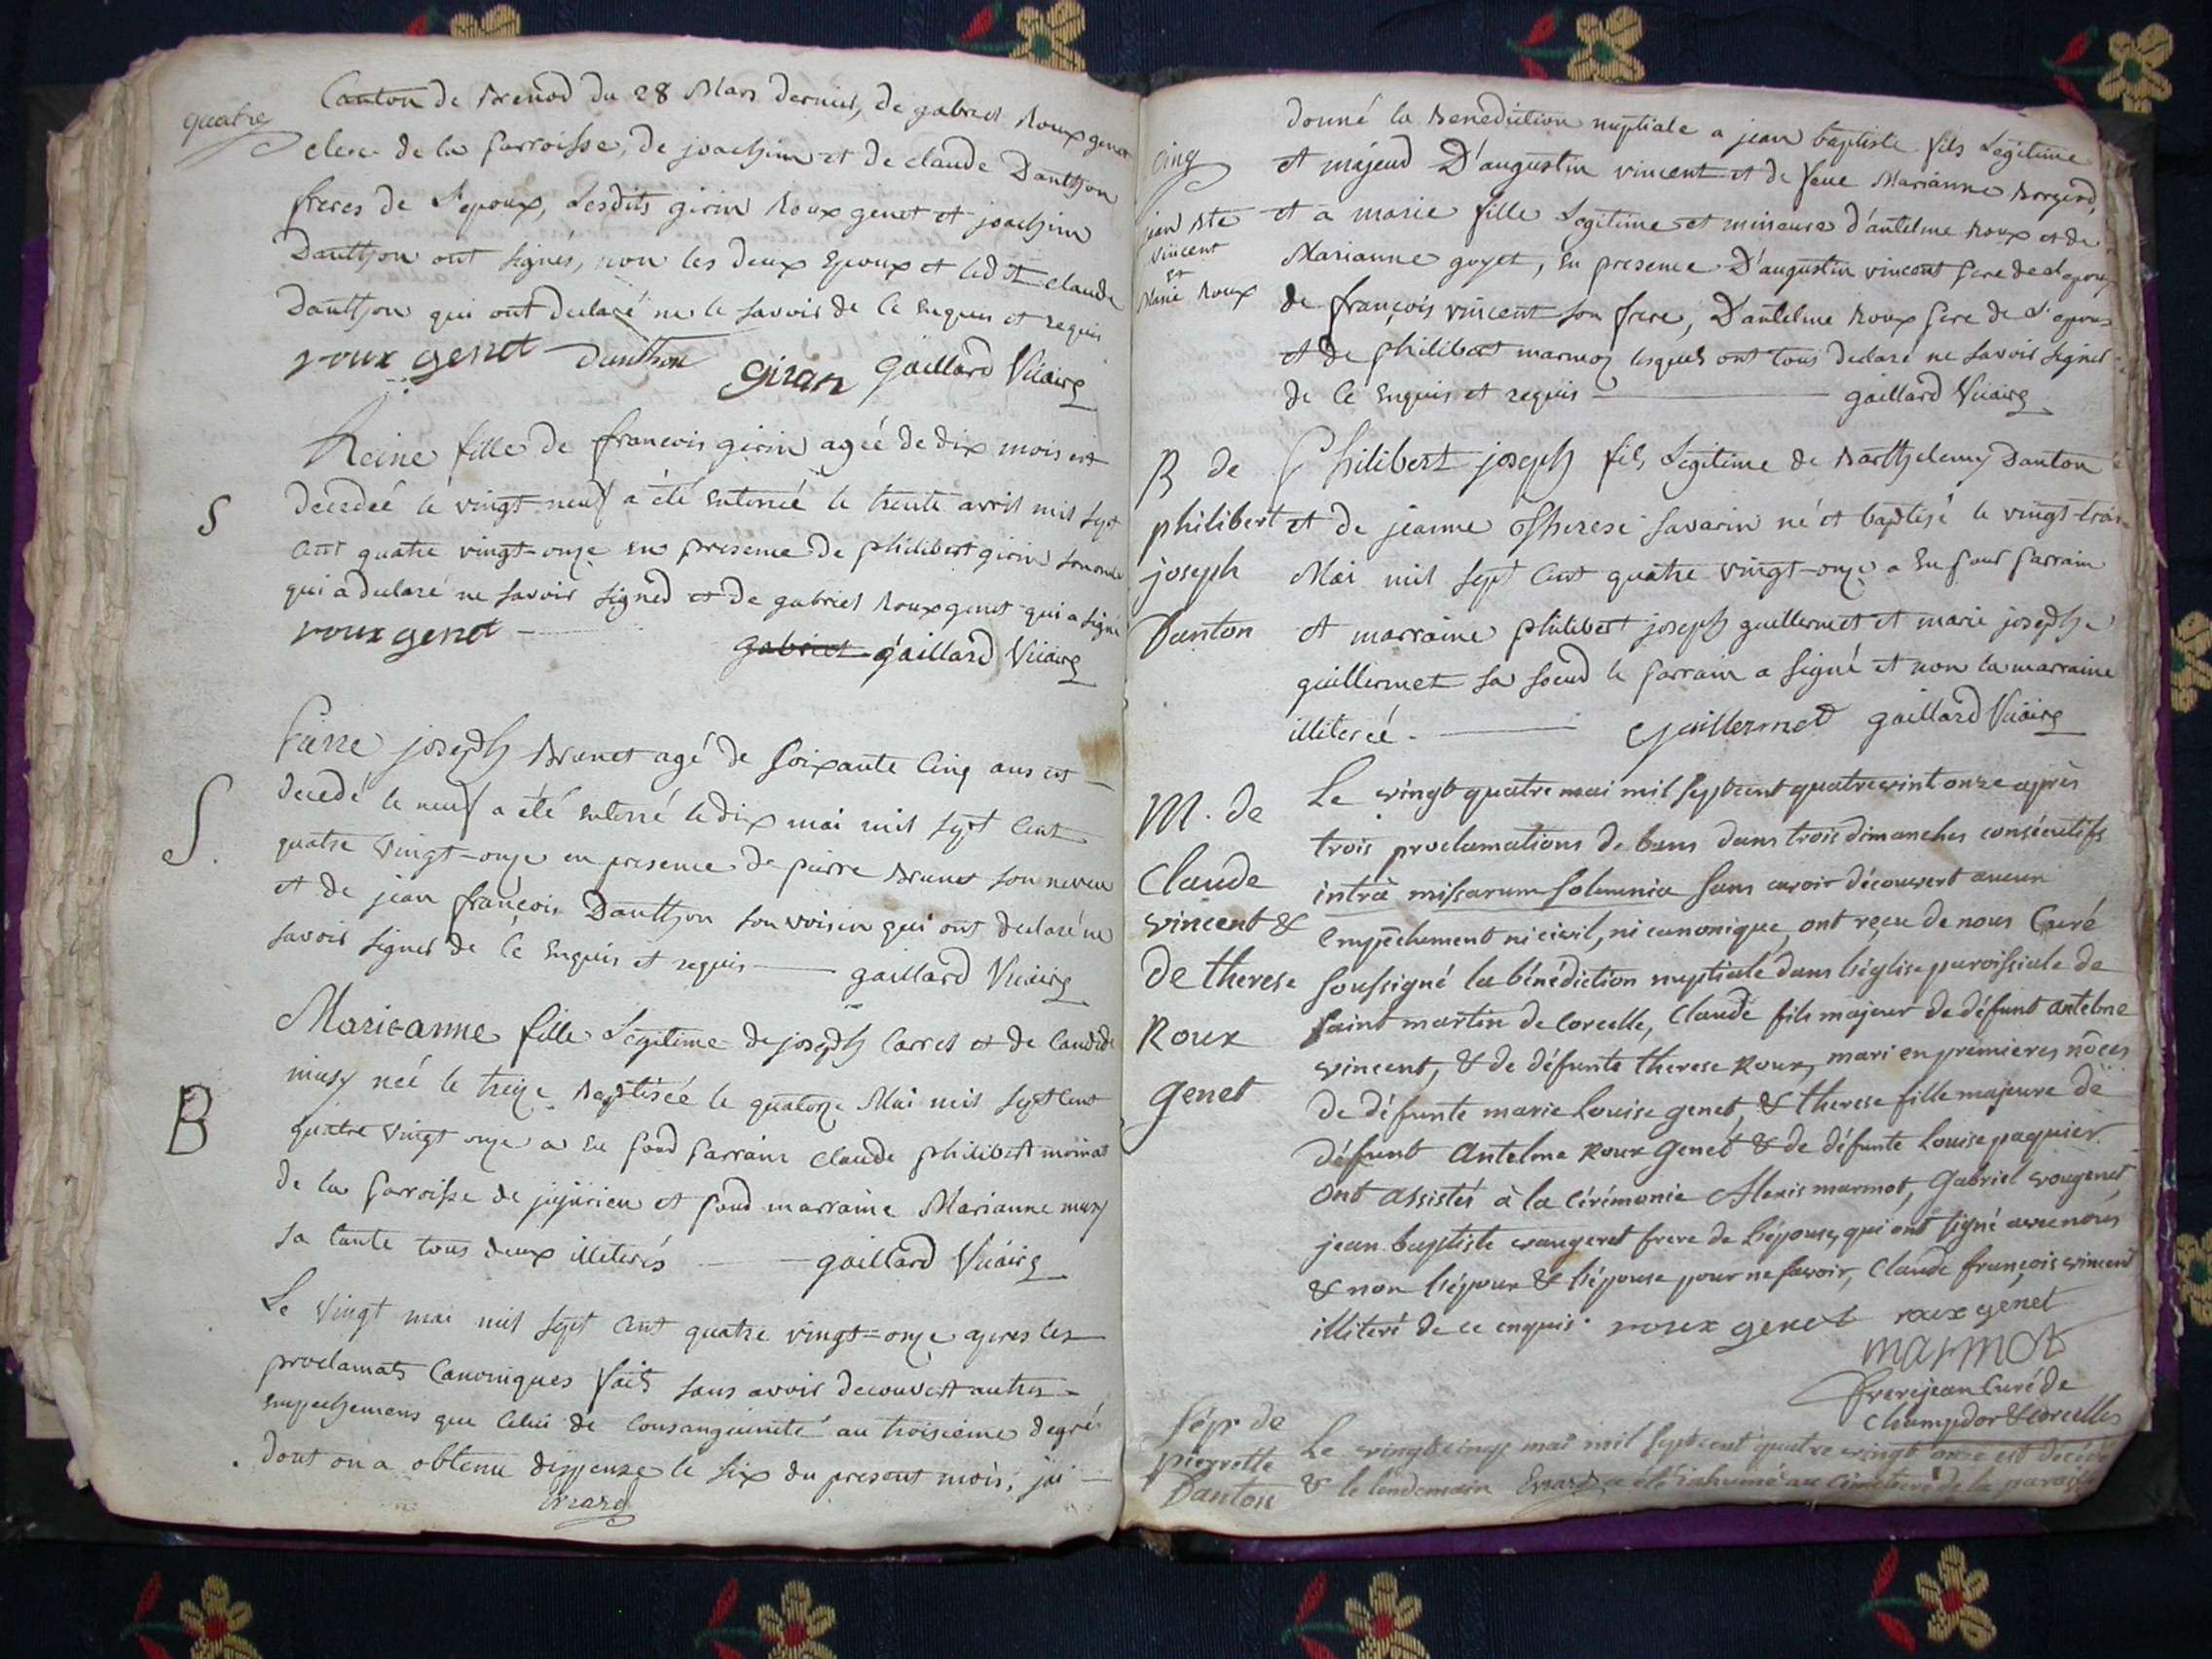 quatre
Canton de Brenod du 28 Mars dernier, de gabriel Roux genet
clerc de la parroisse, de joachim et de claude Danthon
freres de l'epoux, Lesdits girin Roux genet et joachim
Danthon ont signés, non les deux Epoux et ledit claude
Danthon qui ont declaré ne le savoir de ce enquis et requis
roux genet Danthon Giran gaillard Vicaire
Reine fille de francois girin agée de dix mois est
S
decedée le vingt-neuf a été enterrée le trente avril mil sept
cent quatre vingt-onze en presence de philibert girin son oncle
qui a declaré ne savoir signer et de gabriel Roux genet qui a signé
roux genet gabriel gaillard Vicaire
Pierre joseph Brunet agé de soixante cinq ans est
S.
decedé le neuf a été enterré le dix mai mil sept cent
quatre vingt-onze en presence de pierre Brunet son neveu
et de jean françois Danthon son voisin qui ont declaré ne
savoir signer de ce enquis et requis gaillard Vicaire
Marie-anne fille Legitime de joseph Carrel et de Candide
B
musy neé le treize Baptisée le quatorze Mai mil sept cent
quatre vingt onze a eu pour parrain claude philibert moinat
de la parroisse de jujurieu et pour marraine Marianne musy
sa tante tous deux illiterés gaillard Vicaire
Le vingt mai mil sept cent quatre vingt-onze apres les
proclamats Canoniques faits sans avoir decouvert autres
empechemens que celui de Consanguinité au troisieme degré
dont on a obtenu dispense le six du present mois, jai
cinq
donné la Benediction nuptiale a jean baptiste fils Legitime
et majeur D'augustin vincent et de feue Marianne
jean Bte
vincent
et
Marie Roux
et a marie fille Legitime et mineure d'antelme Roux et de
Marianne goyet, en presence D'augustin vincent pere de l'epoux
de françois vincent son frere, D'antelme Roux pere de L'epouse
et de philibert marmoz lesquels ont tous declaré ne savoir signer
de ce enquis et requis gaillard Vicaire
B de
philibert
joseph
Danton
Philibert joseph fils Legitime de Barthelemy Danton
et de jeanne Therese Savarin né et baptisé le vingt-trois
Mai mil sept cent quatre vingt-onze a eu pour parrain
et marraine philibert joseph guillermet et marie josephe
guillermet sa soeur le parrain a signé et non la marraine
illiterée. guillermet gaillard Vicaire
M. de
Claude
vincent &
de therese
Roux
genet
Le vingt quatre mai mil septcent quatrevint onze après
trois proclamations de bans dans trois dimanches consécutifs
intrà missarum solemnia sans avoir découvert aucun
empêchement ni civil, ni canonique, ont reçu de nous Curé
soussigné la bénédiction nuptiale dans l'église paroissiale de
saint martin de Corcelle, Claude fils majeur de défunt antelme
vincent, & de défunte therese Roux, mari en premieres nôces
de défunte marie Louise genet, & therese fille majeure de
défunt Antelme Roux Genet & de défunte Louise paquier.
Ont assistés à la cérémonie Alexis marmot, Gabriel rougenet,
jean baptiste rougenet frere de l'épouse, qui ont signé avec nous
& non l'époux & l'épouse pour ne savoir, Claude françois vincent
illiteré de ce enquis. roux genet roux génet
marmot
frerejean Curé de
Champdor & corcelles
Sép. de
pierrette
Danton
Le vingt cinq mai mil septcent quatre vingt onze est décédée
& le lendemain a été inhumée au cimetiere de la paroisse